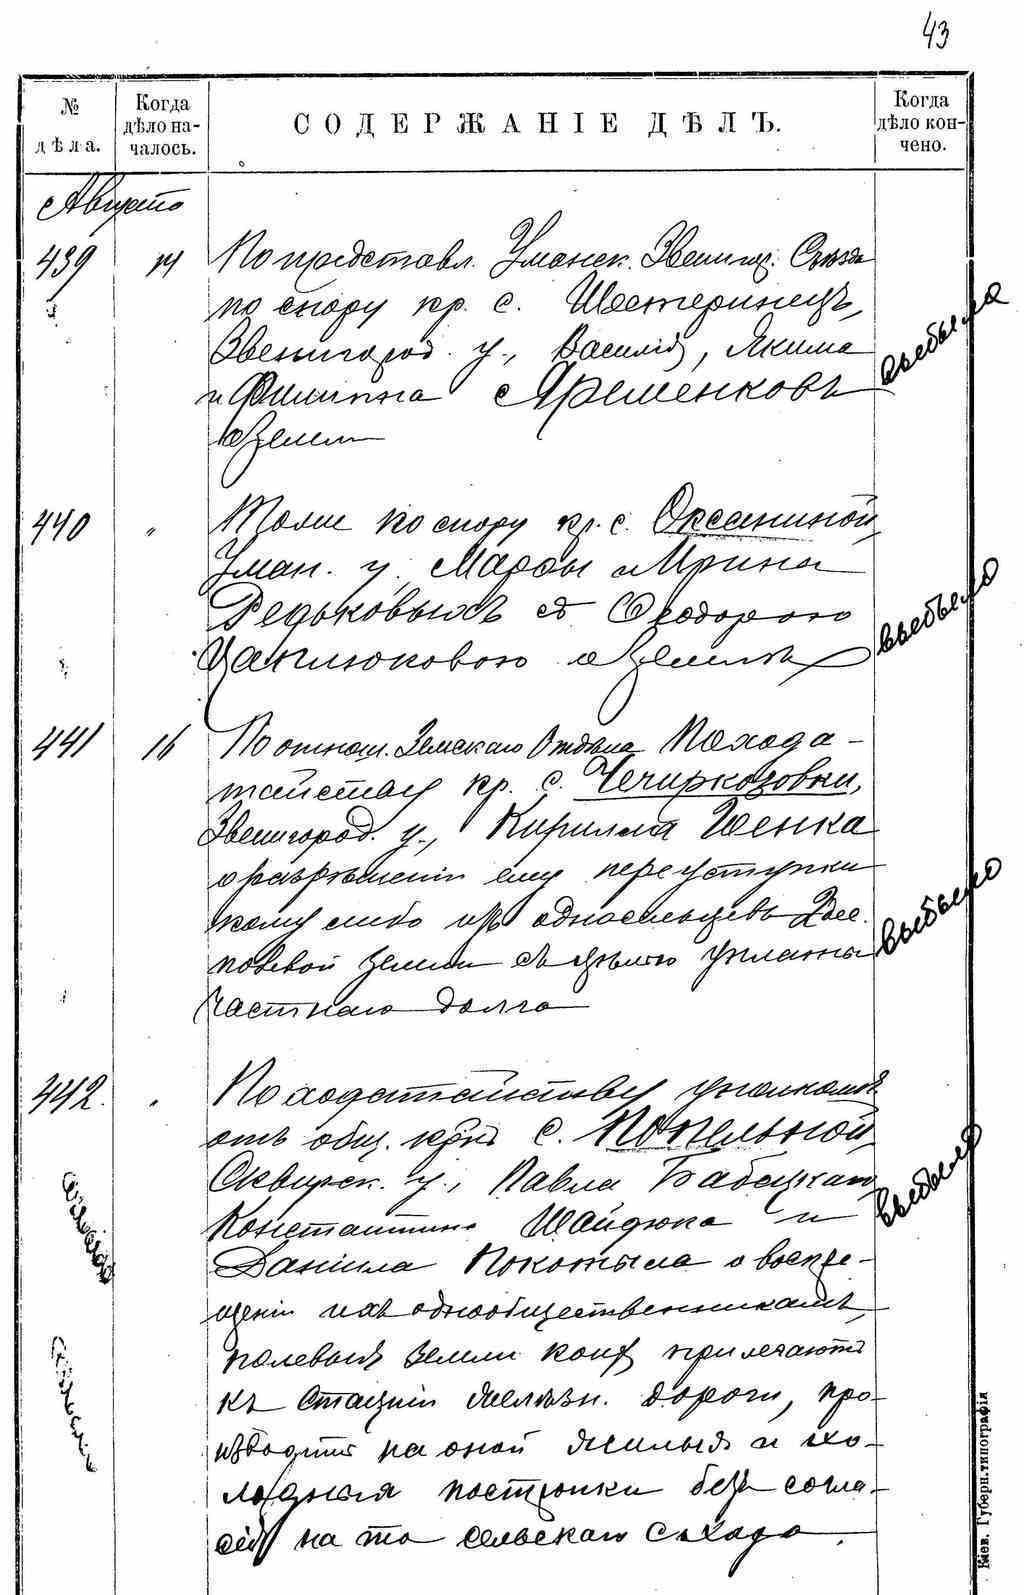 43
№ дѣла.
Когда дѣло началось.
СОДЕРЖАНІЕ ДѢЛЪ.
Когда дѣло кончено.
Августъ
439 14 По представл. Уманск. Звениг. Съѣзда
по спору кр. с. Шестеринецъ,
Звенигород. у., Василія, Якима
и Филиппа Яременковъ
о землѣ
выбыло
440 " Тоже по спору кр. с. Оксаниной,
Уман. у. Марфы и Ирины
Редьковыхъ съ Ѳеодорою
Цаплюковою о землѣ
выбыло
441 16 По отнош. Земскаго Отдѣла По хода-
тайству кр. с. Чечиркозовки,
Звенигород. у., Кирилла Шенка
о разрѣшеніи ему переуступки
кому либо изъ односельцевъ 2 дес.
полевой земли съ цѣлью уплаты
частнаго долга
выбыло
442. " По ходатайству уполномоч.
отъ общ. крест. с. Попельной,
Сквирск. у., Павла
Константина Шайдюка и
Даніила Покотыла о воспре-
щеніи ихъ однообщественникамъ,
полевыя земли коихъ прилегаютъ
къ станціи желѣзн. дороги, про-
изводить на оной жилыя и хо-
лодныя постройки безъ согла-
сія на то сельскаго схода.
выбыло
Кіев. Губерн. типографія